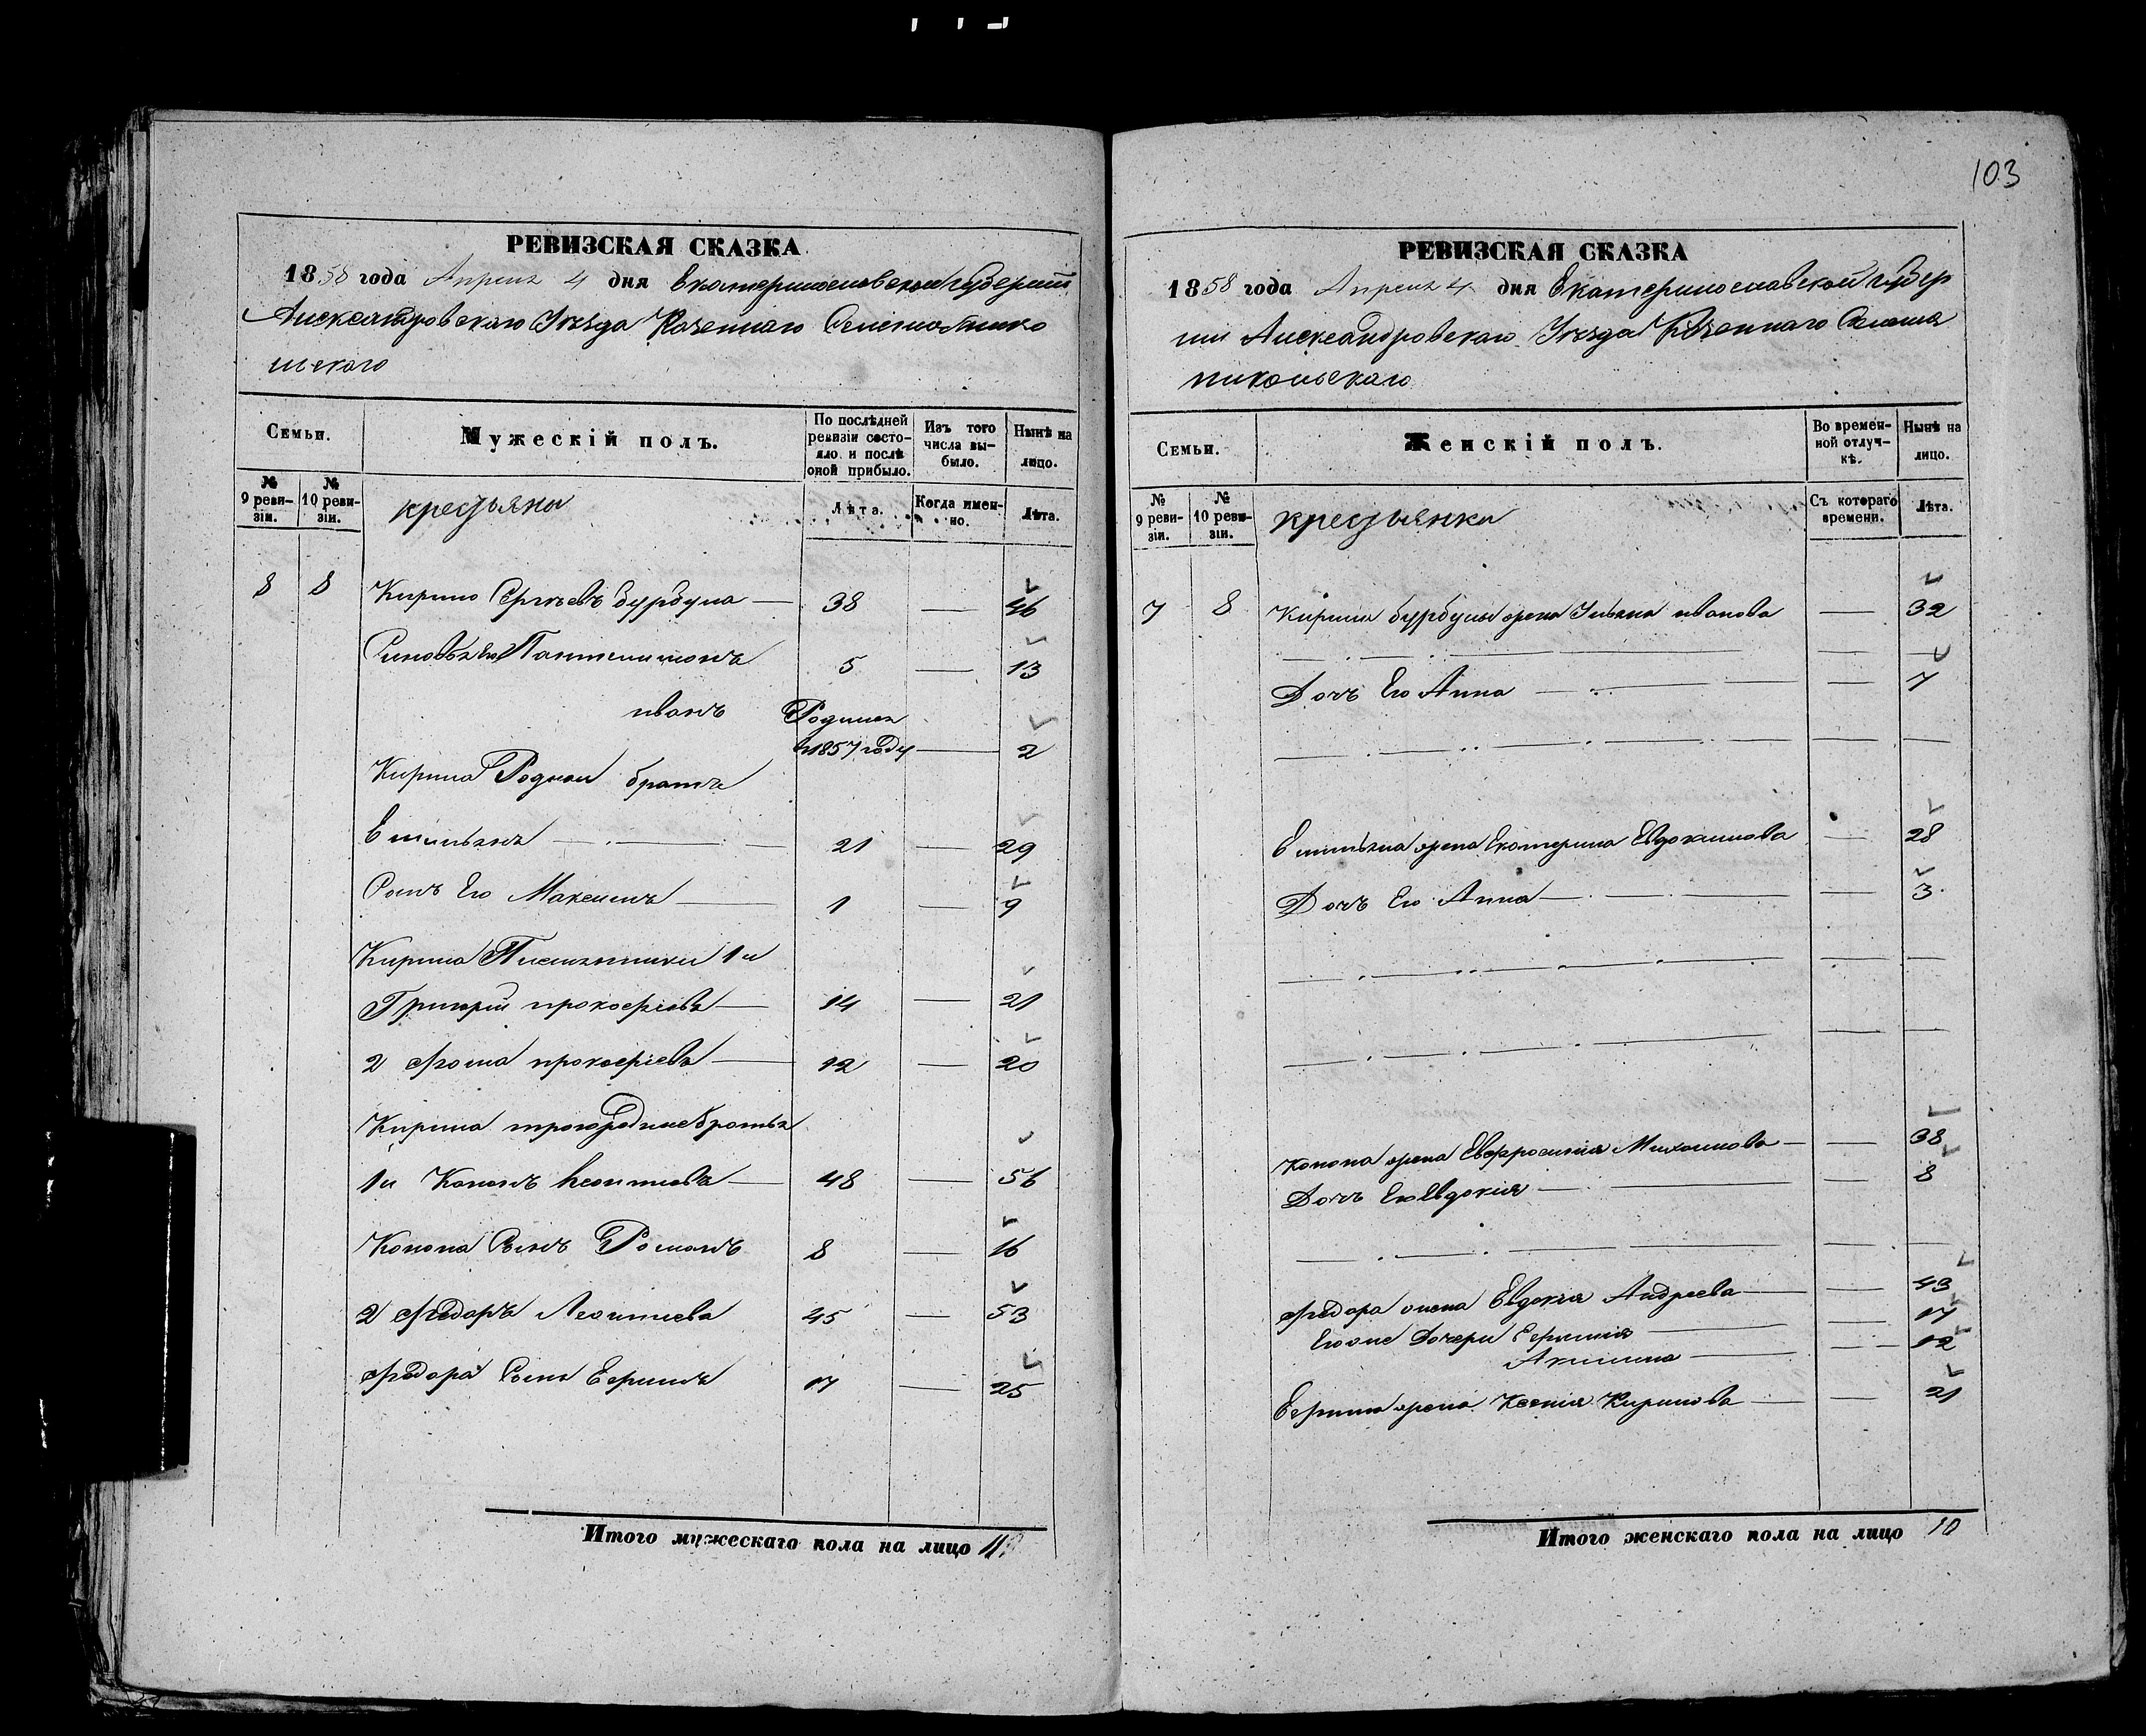 103
РЕВИЗСКАЯ СКАЗКА
1858 года Апреля 4 дня Екатеринославской губернии
Александровскаго Уезда Казеннаго Селения Нико
льскаго
Семьи.
Мужескій полъ.
По послѣдней ревизіи состояло и послѣ оной прибыло.
Изъ того числа выбыло.
Нынѣ на лицо.
№ 9 ревизіи.
№ 10 ревизіи.
крестьяни
Лѣта.
Когда именно.
Лѣта.
8 8 Кирило Сергѣевъ бурбула — 38 — 46
Синовья Его Пантелимонъ 5 — 13
иванъ Родился
в 1857 году — 2
Кирила Родной братъ
Емильянъ — 21 — 29
Сынъ Его Максимъ — 1 — 9
Кирила Племянники 1й
Григорій прокофіевъ — 14 — 21
2 Фома прокофіевъ — 12 — 20
Кирила троюродние братья
1й Кононъ Леонтиевъ — 48 — 56
Конона Сынъ Романъ 8 — 16
2 Федоръ Леонтиевъ 45 — 53
Федора Сынъ Ефимъ 17 — 25
Итого мужескаго пола на лицо
РЕВИЗСКАЯ СКАЗКА
1858 года Апреля 4 дня Екатеринославской губер
нии Александровскаго Уезда Казеннаго Селения
никольскаго
Семьи.
Женскій полъ.
Во временной отлучкѣ.
Нынѣ на лицо.
№ 9 ревизіи.
№ 10 ревизіи.
крестьянки
Съ котораго времени.
Лѣта.
7 8 Кирила бурбулы жена Ульяна иванова — 32
Дочь Его Анна — 7
Емильяна жена Екатерина Евдокимова — 28
Дочь Его Анна — 3
Конона жена Евфросиния Михайлова — 38
Дочь Его Евдокия — 8
Федора жена Евдокия Андреева — 43
Егоже Дочери Ефимия — 17
Акилина — 12
Ефима жена Ксения Кирилова — 21
Итого женскаго пола на лицо 10